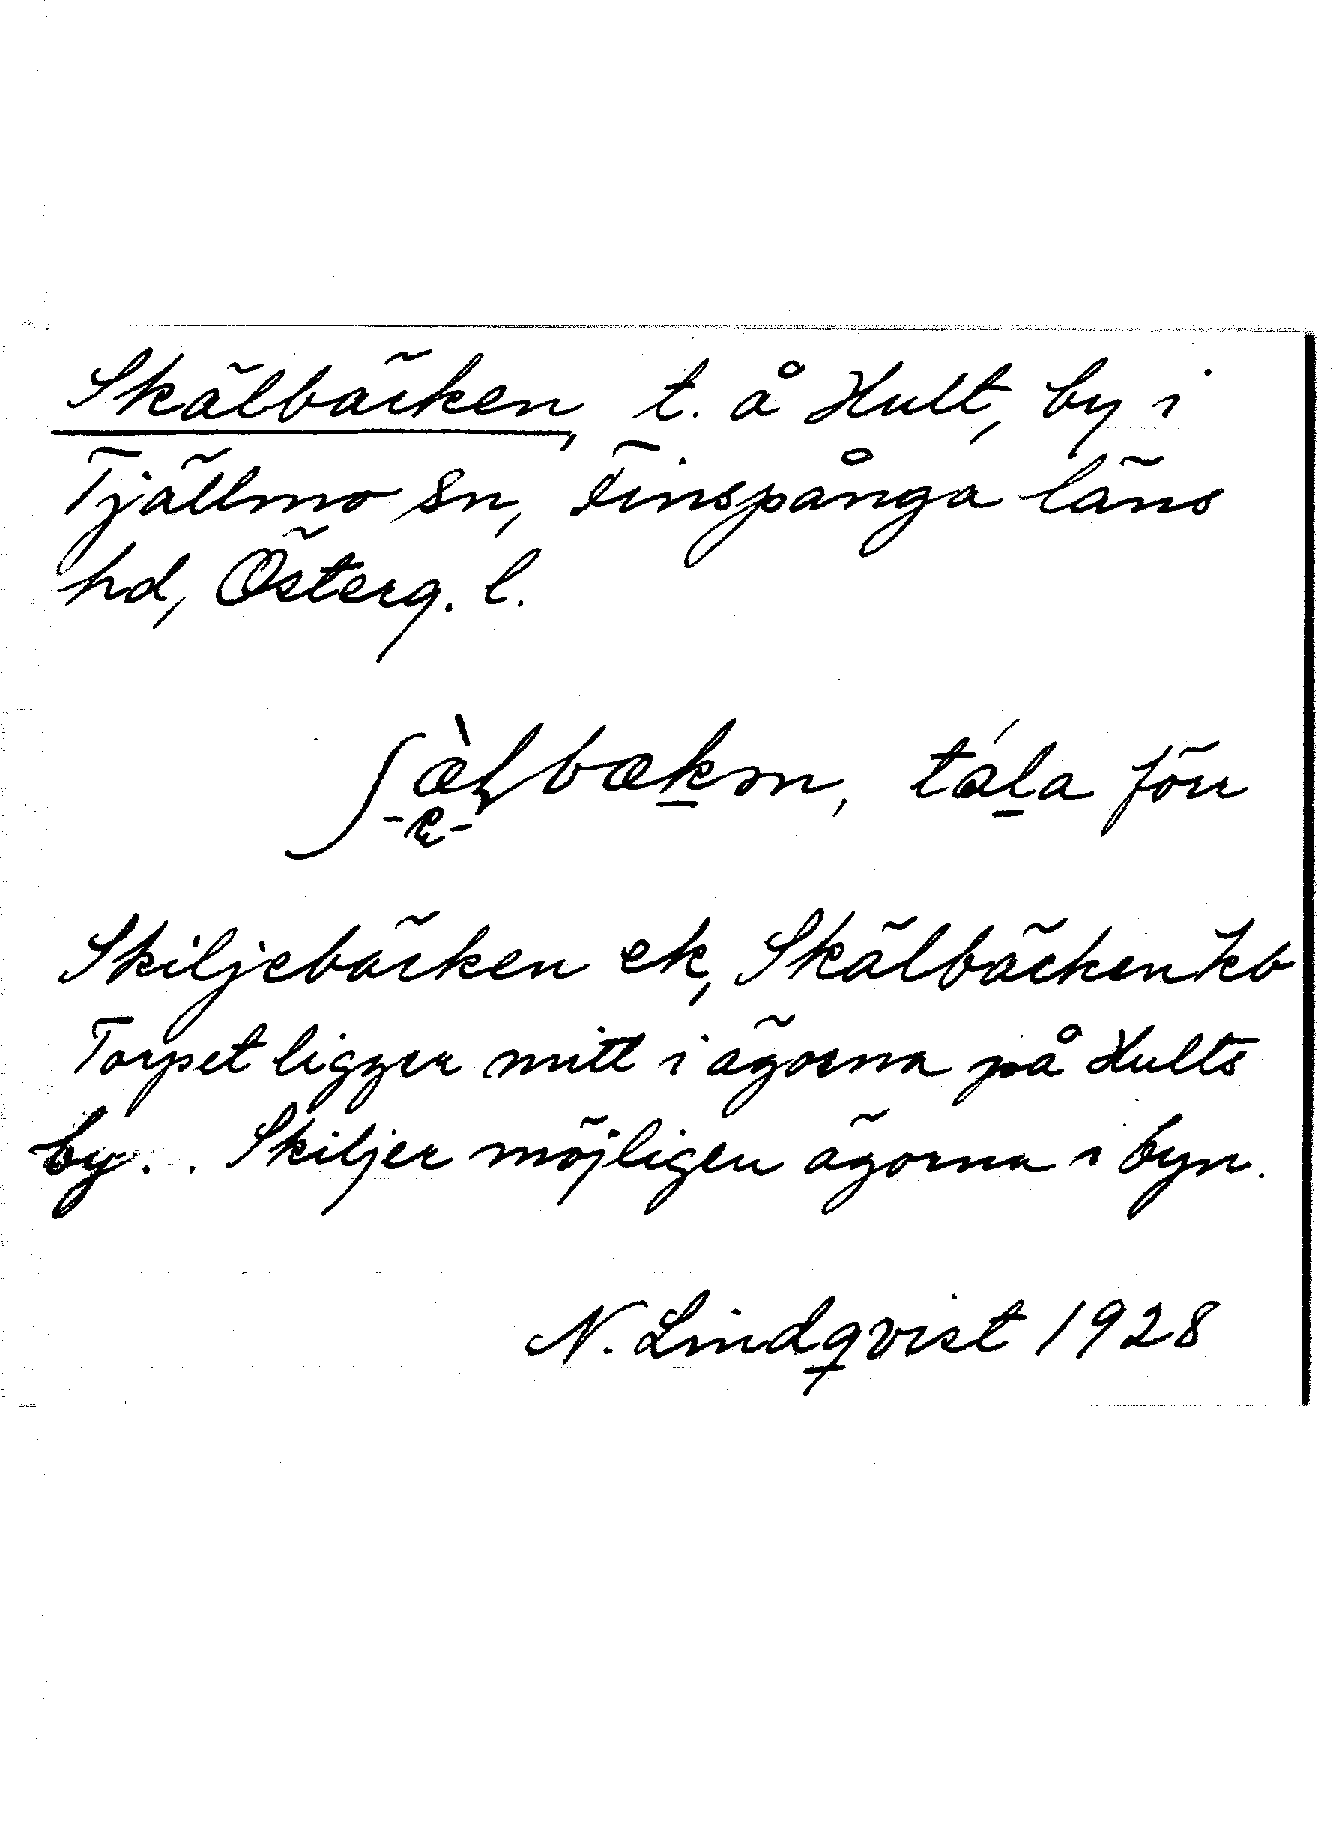 Skälbäcken, t. å Hult, by i
Tjällmo sn, Finspånga läns
hd, Österg. l.
ʃæ̀lbækən, tála förr
-e-
Skiljebäcken ek, Skälbäcken kb
Torpet ligger mitt i ägorna på Hults
by... Skiljer möjligen ägorna i byn.
N. Lindqvist 1928